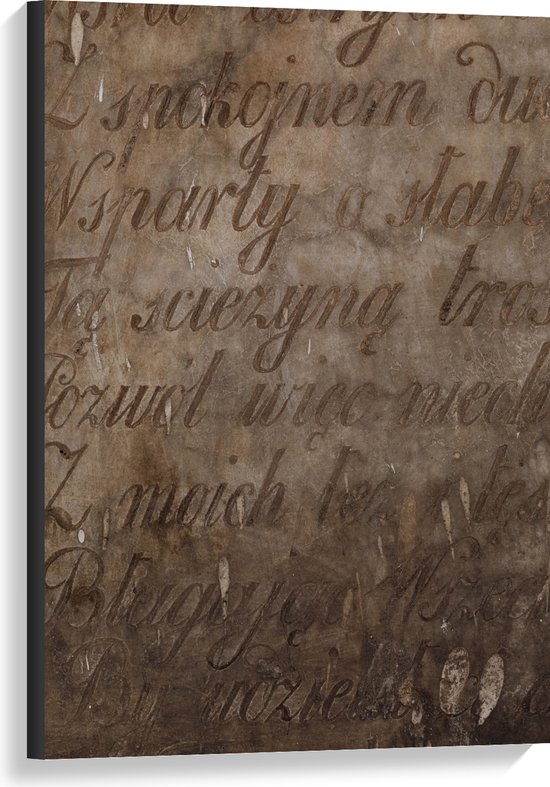 Z spokojnem du
Wsparty o słabe
Tą scieżyną tros
Pozwól więc niech
Z moich łez
Błagając Wszech
By udzielał